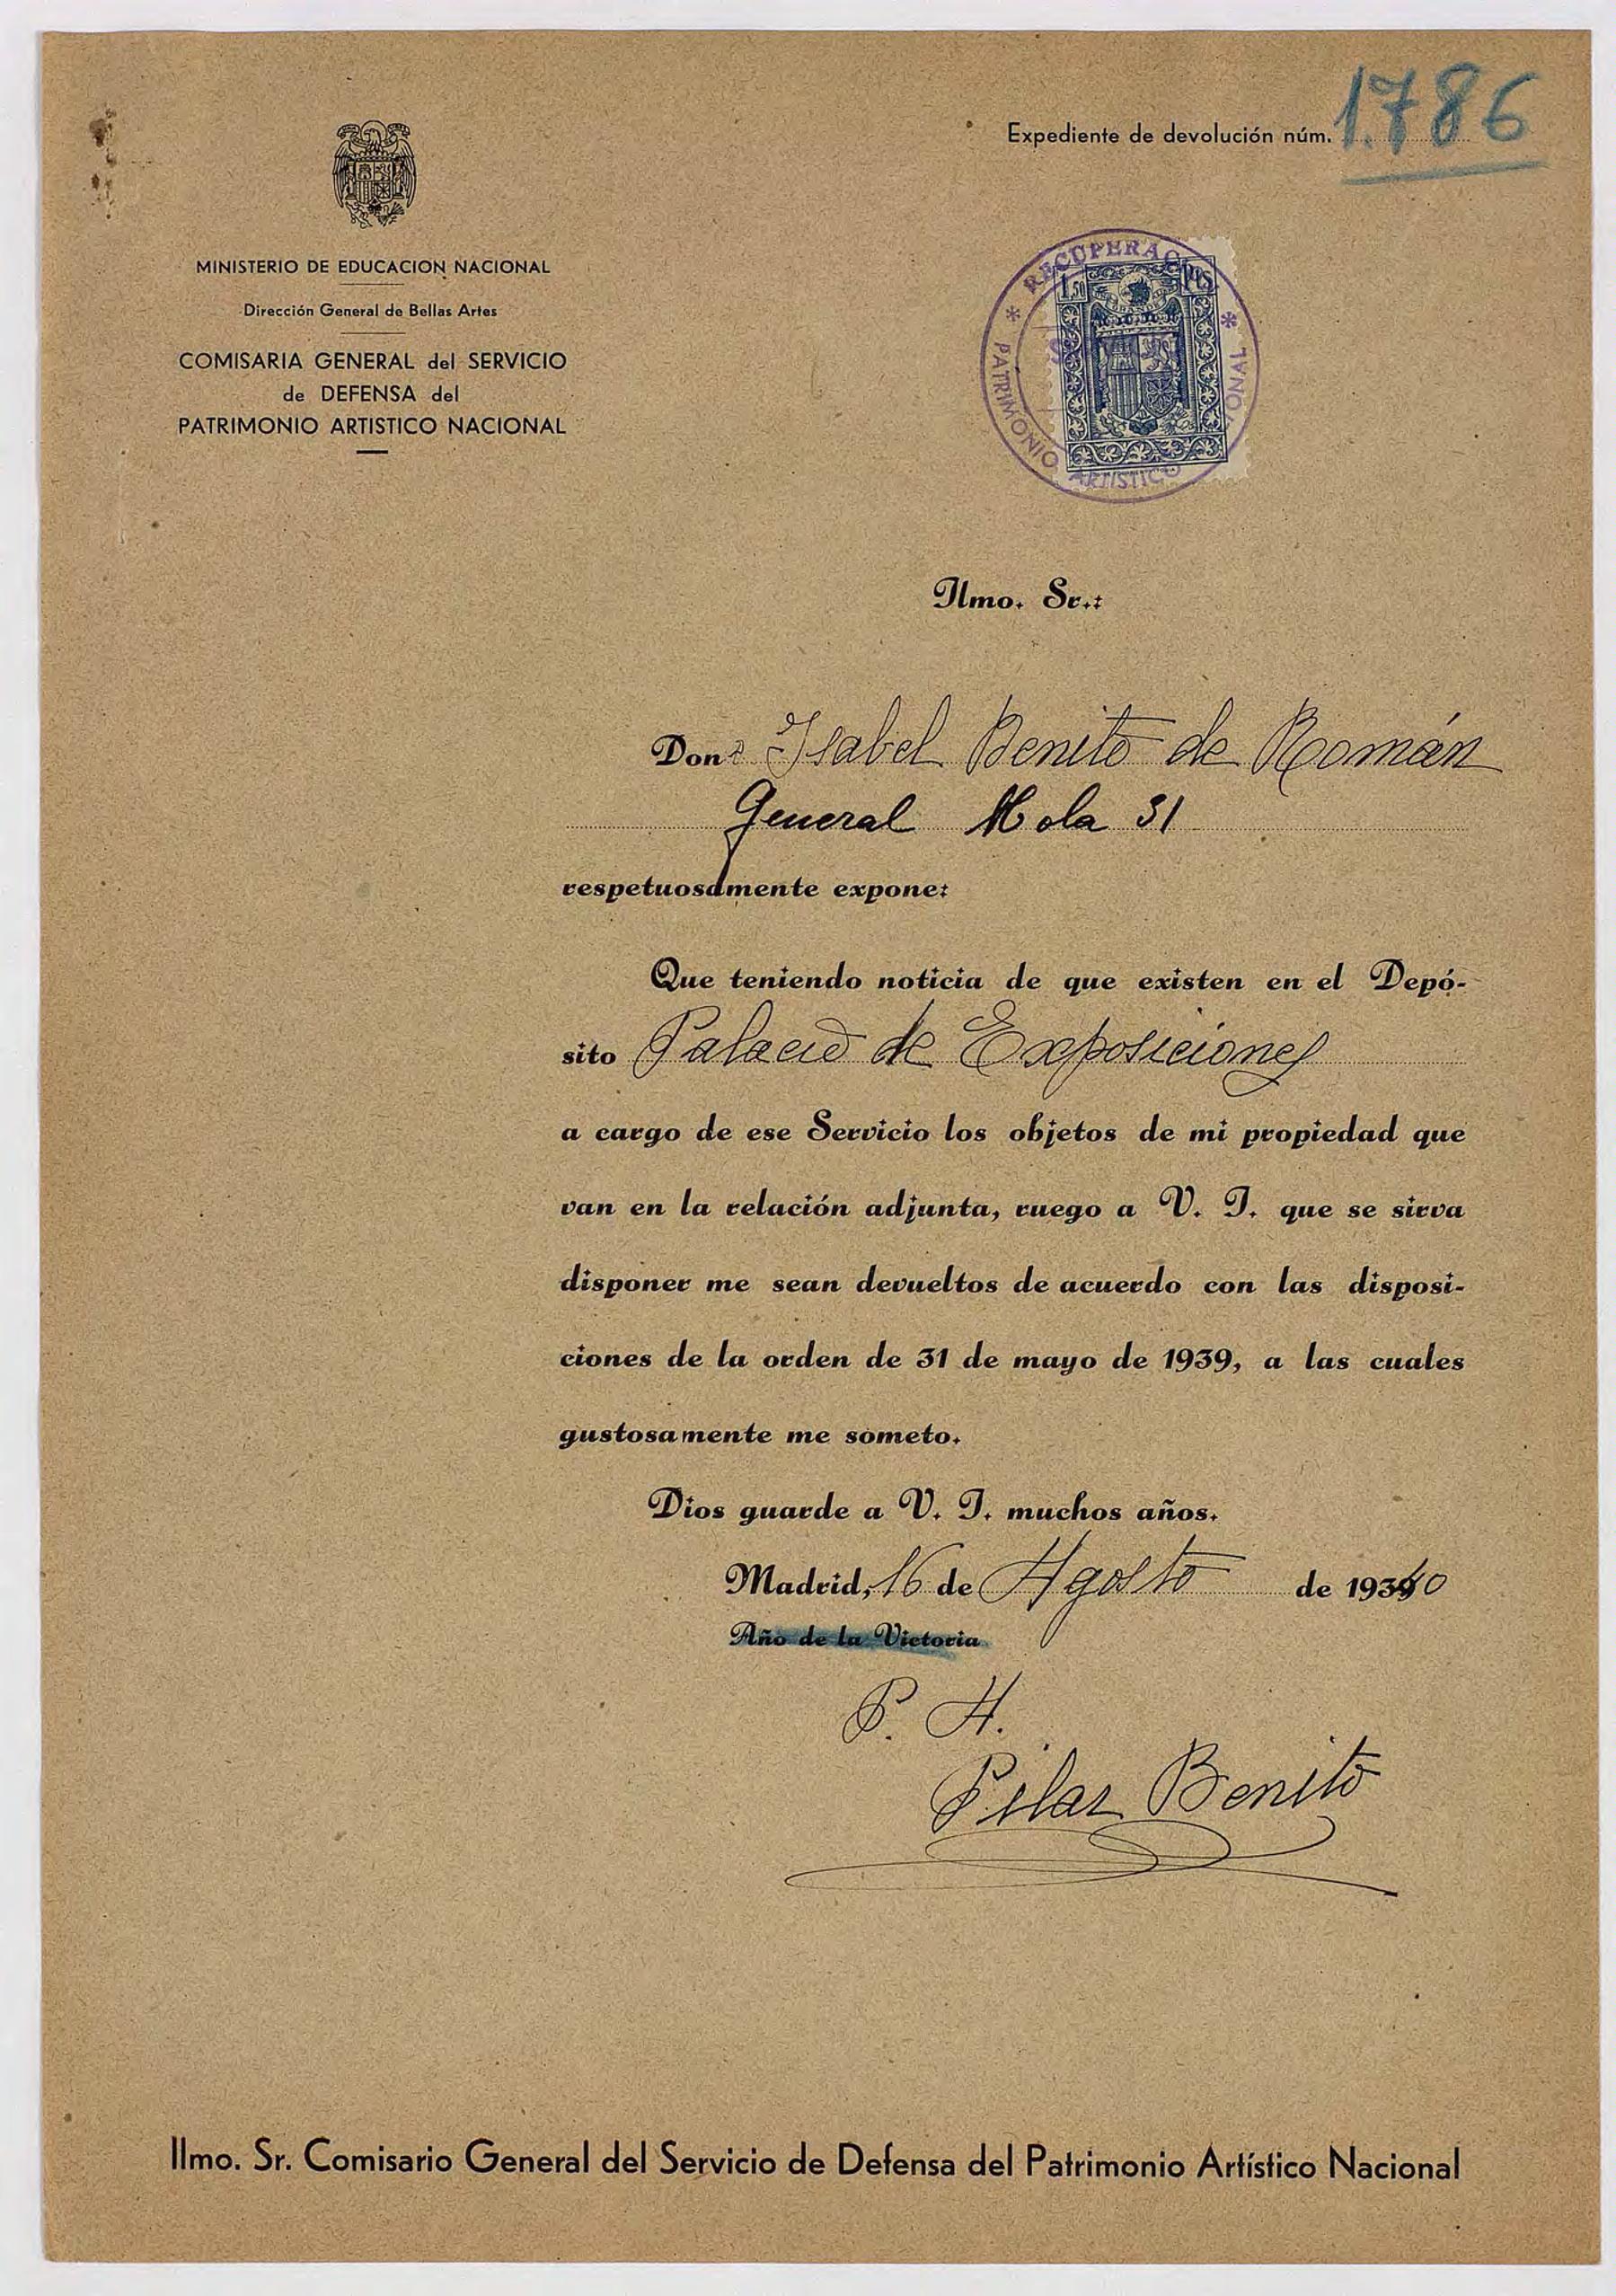 Expediente de devolución núm. 1.786
MINISTERIO DE EDUCACION NACIONAL
Dirección General de Bellas Artes
COMISARIA GENERAL del SERVICIO
de DEFENSA del
PATRIMONIO ARTISTICO NACIONAL
RECUPERAC
PATRIMONIO ARTISTICO IONAL
1,50 PTS.
Ilmo. Sr.:
Donª Isabel Benito de Román
General Mola 31
respetuosamente expone:
Que teniendo noticia de que existen en el Depó-
sito Palacio de Exposiciones
a cargo de ese Servicio los objetos de mi propiedad que
van en la relación adjunta, ruego a V. I. que se sirva
disponer me sean devueltos de acuerdo con las disposi-
ciones de la orden de 31 de mayo de 1939, a las cuales
gustosamente me someto.
Dios guarde a V. I. muchos años.
Madrid, 16 de Agosto de 1940
Año de la Victoria
P. A.
Pilar Benito
Ilmo. Sr. Comisario General del Servicio de Defensa del Patrimonio Artístico Nacional